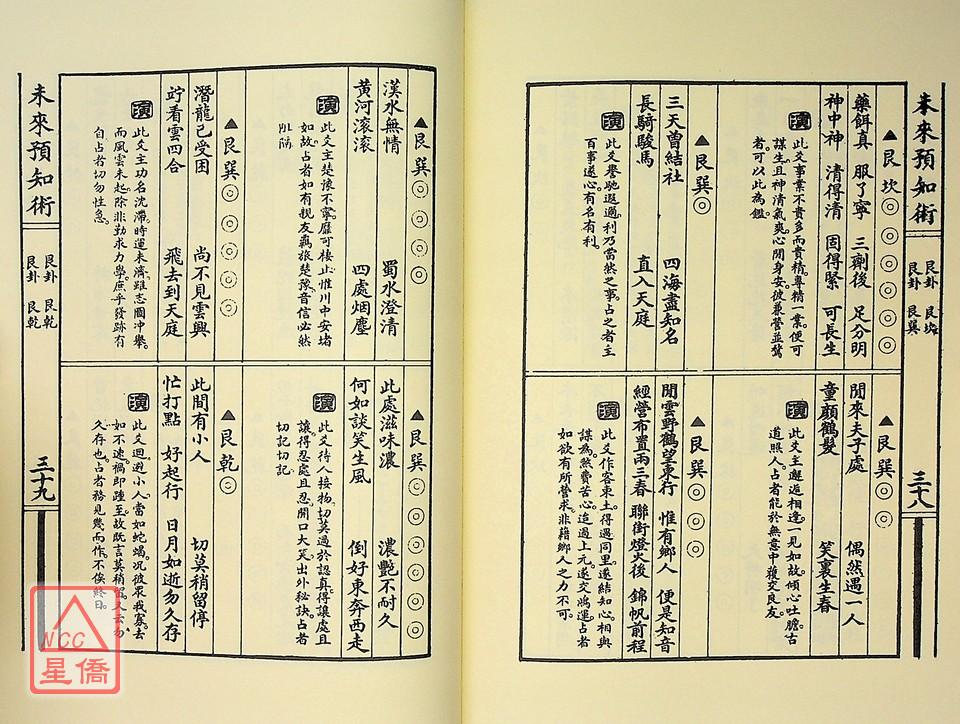 未來預知術
艮卦 艮坎
艮卦 艮巽
三十八
▲艮坎◎◎◎◎◎◎
藥餌真 服了寧 三劑後 足分明
神中神 清得清 固得緊 可長生
演
此爻事業不貴多而貴精。專精一業。便可
謀生。且神清氣爽。心閒身安。彼兼營並騖
者。可以此為鑑。
▲艮巽◎
三天曾結社 四海盡知名
長騎駿馬 直入天庭
演
此爻譽馳遐邇。利乃當然之事。占之者主
百事遂心。有名有利。
▲艮巽◎◎
閒來夫子處 偶然遇一人
童顏鶴髮 笑裏生春
演
此爻主邂逅相逢。一見如故。傾心吐膽。古
道照人。占者能於無意中獲交良友。
▲艮巽◎◎◎
閒雲野鶴望東行 惟有鄉人 便是知音
經營布置兩三春 聯街燈火後 錦帆前程
演
此爻作客東土。得遇同里。遂結知心。相與
謀為。然費苦心。迨過上元。遂交鴻運。占者
如欲有所營求。非藉鄉人之力不可。
▲艮巽◎◎◎◎
漢水無情 蜀水澄清
黃河滚滚 四處烟塵
演
此爻主楚豫不寧。靡可棲止。惟川中安堵
如故。占者如有親友羈旅楚豫。音信必然
阻隔。
▲艮巽◎◎◎◎◎
潛龍已受困 尚不見雲興
竚看雲四合 飛去到天庭
演
此爻主功名沈滯。時運未濟。雖志圖冲舉。
而風雲未起。除非勤求力學。庶乎發跡有
自。占者切勿性急。
▲艮巽◎◎◎◎◎◎
此處滋味濃 濃艷不耐久
何如談笑生風 倒好東奔西走
演
此爻待人接物。切莫過於認真。得讓處且
讓。得忍處且忍。開口大笑。出外秘訣。占者
切記切記。
▲艮乾◎
此間有小人 切莫稍留停
忙打點 好起行 日月如逝勿久存
演
此爻迴避小人。當如蛇蝎。况彼衆我寡。去
如不速。禍即踵至。故既言莫稍留。又云勿
久存也。占者務見幾而作。不俟終日。
未來預知術
艮卦 艮乾
艮卦 艮乾
三十九
NCC
星僑